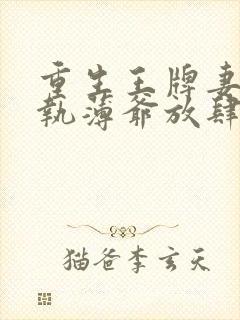 重生王牌妻
執薄爺放肆
猫爸李玄天